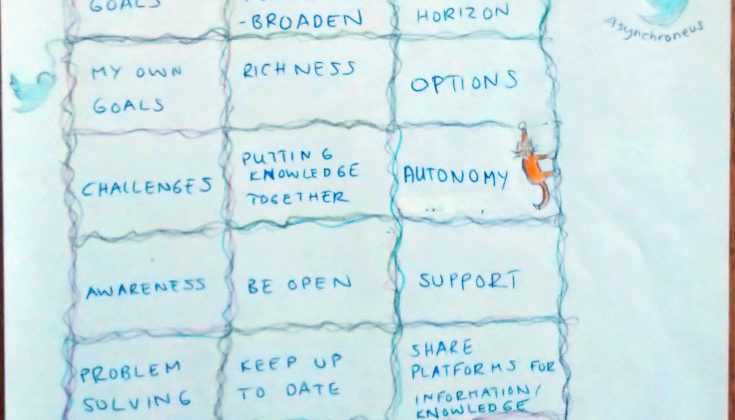 GOALS
-BROADEN
HORIZON
Asynchroneus
MY OWN
GOALS
RICHNESS
OPTIONS
CHALLENGES
PUTTING
KNOWLEDGE
TOGETHER
AUTONOMY
AWARENESS
BE OPEN
SUPPORT
PROBLEM
SOLVING
KEEP UP
TO DATE
SHARE
PLATFORMS FOR
INFORMATION/
KNOWLEDGE